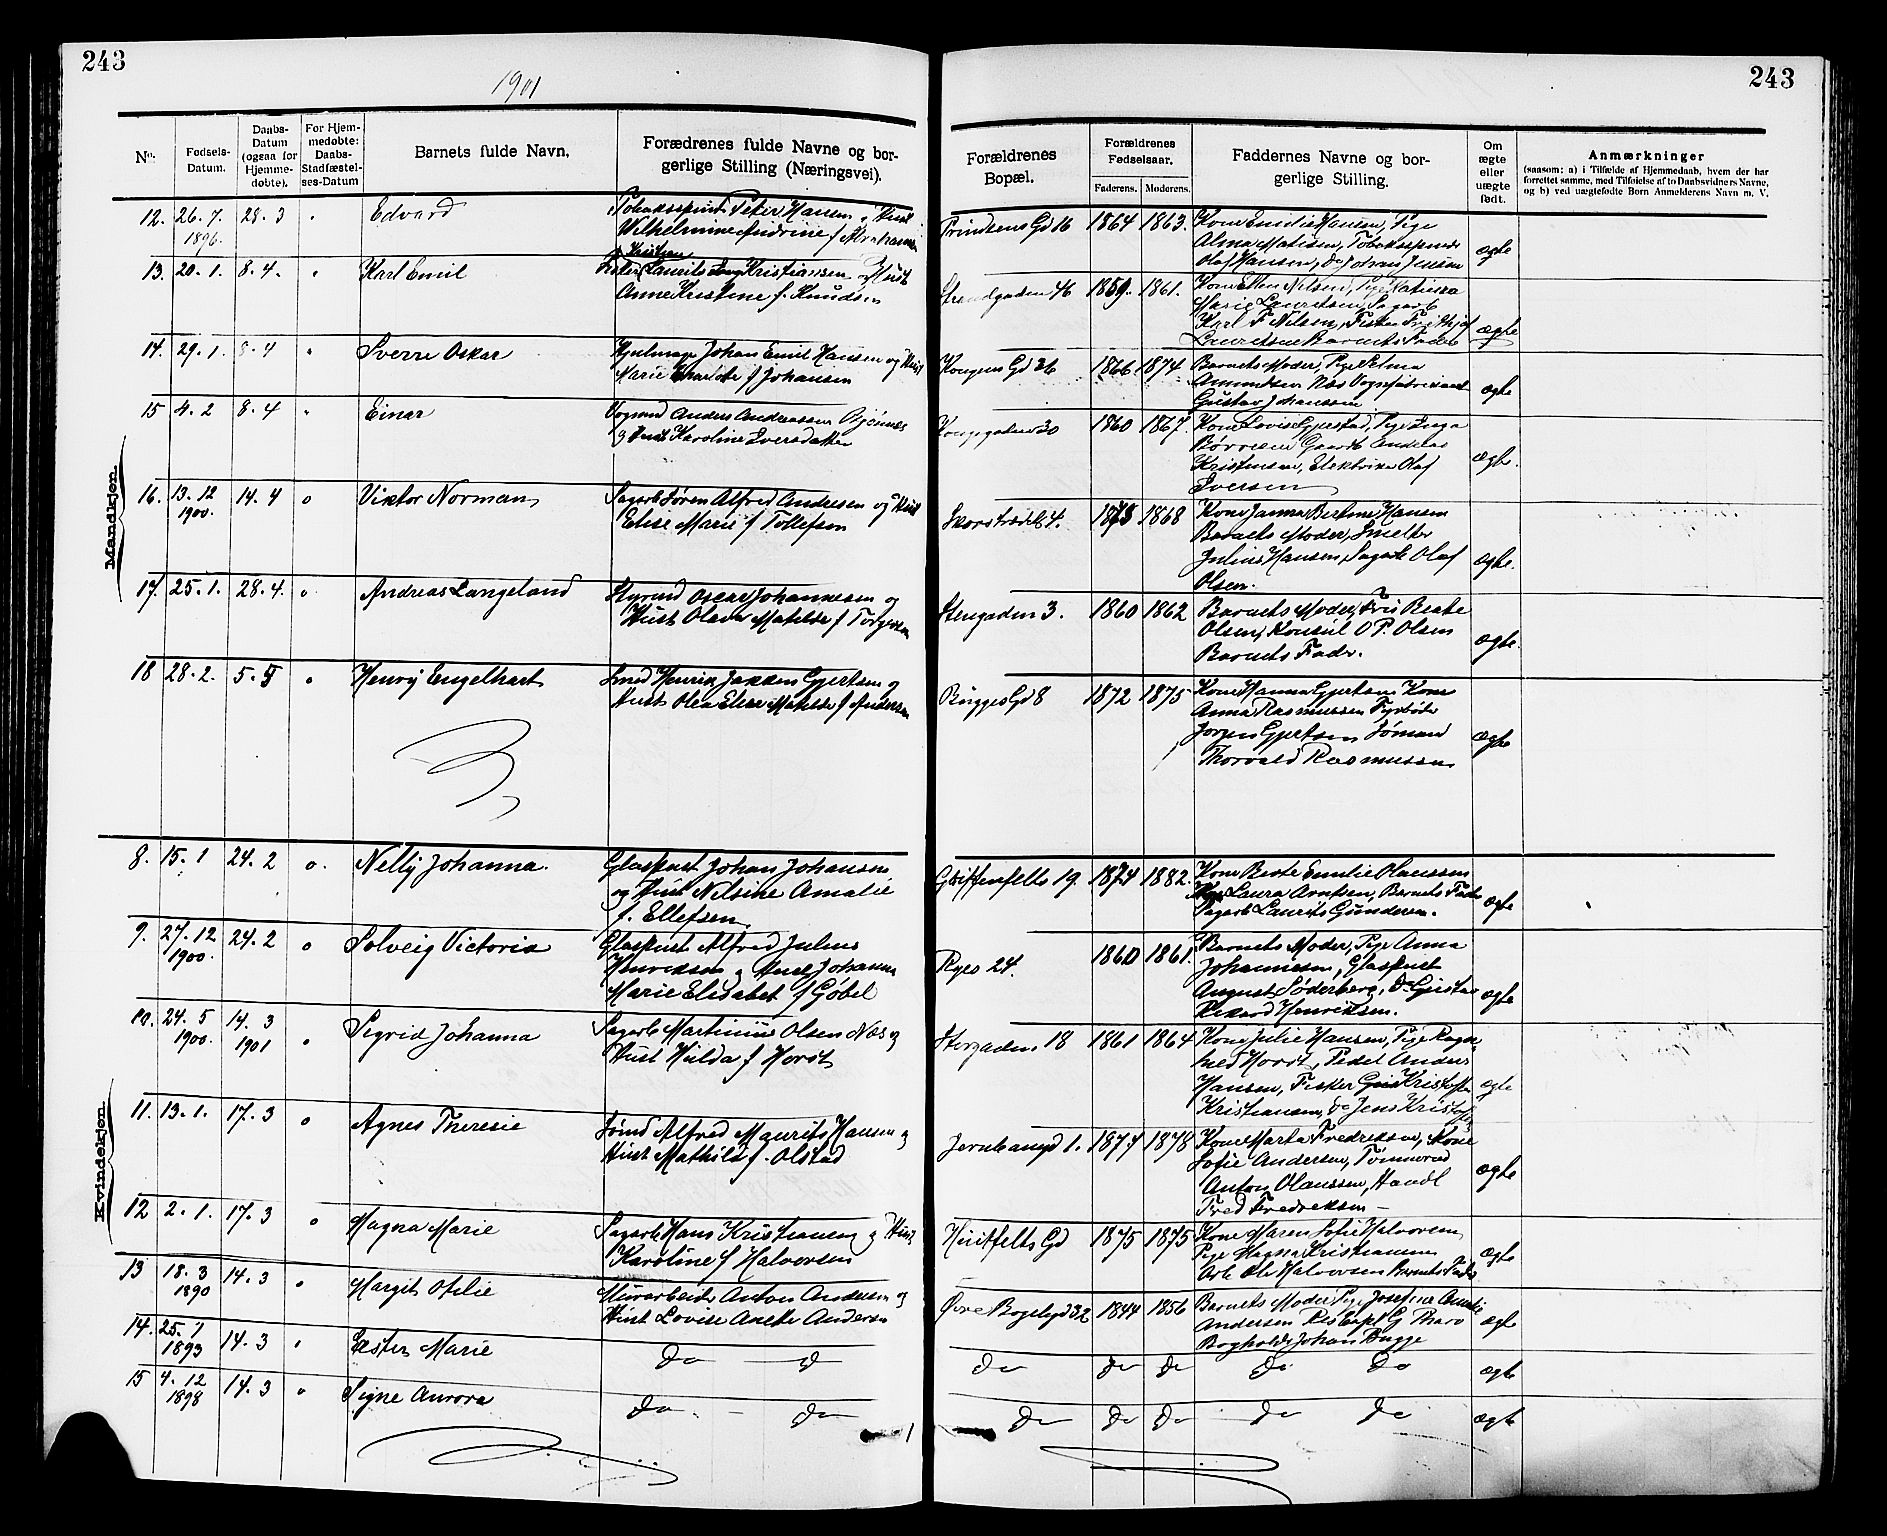 243
1901
243
No.
Fødsels-Datum.
Daabs-Datum (ogsaa for Hjemmedøbte).
For Hjemmedøbte: Daabs-Stadfæstelses-Datum
Barnets fulde Navn.
Forædrenes fulde Navne og borgerlige Stilling (Næringsvei).
Forældrenes Bopæl.
Forældrenes Fødselsaar.
Faderens. Moderens.
Faddernes Navne og borgerlige Stilling.
Om ægte eller uægte født.
Anmærkninger
(saasom: a) i Tilfælde af Hjemmedaab, hvem der har
forrettet samme, med Tilføielse af to Daabsvidners Navne,
og b) ved uægtefødte Børn Anmelderens Navn m. V.
Mandkjøn.
12. 26.7. 1896. 28.3 Edvard
Peter Hansen
Vilhelmine Andrine f.
Prindsens Gd 16 1864 1863.
Kone Emilie Hansen, Pige
Olaf Hansen, do Johan Jensen
ægte
13. 20.1. 8.4. Karl Emil
Laurits Kristiansen og Hust
Anne Kristine f. Knudsen
Strandgaden 46 1859. 1861.
Kone Ellen Nilsen, Pige
Marie Lauritsen, Sagarb
Karl F Nilsen, Fisker Frithjof
Lauritsen Barnets Fader
ægte
14. 29.1. 8.4 Sverre Oskar
Hjulmager Johan Emil Hansen og Hust
Marie Charlotte f Johansen
Kongens Gd 26 1866. 1874
Barnets Moder, Pige
Amundsen Næs
Gustav Johanssen
ægte
15 4.2 8.4 Einar
Vognmd Anders Andreassen
og Hust Karoline Iversdatter
Kongegaden 30 1860 1867.
Kone Lovise Gjerstad, Pige Inga
Kristensen, Elektriker Olaf
Iversen
ægte.
16. 13.12 1900. 14.4 o Viktor Norman
Sagarb Søren Alfred Andresen og Hust
Elise Marie f Tollefsen
4. 1868
Kone Janna Bertine Hansen
Barnets Moder, Smelter
Julius Hansen, Sagarb Olaf
Olsen.
ægte.
17. 25.1. 28.4. o Andreas Langeland
Styrmd Oscar Johannesen og
Hust Olava Matilde f Torgersen
Stengaden 3. 1860 1862
Barnets Moder, Frù Beate
Olsen, Konsul O P. Olsen
Barnets Fader.
ægte.
18 28.2. 5.5 o Henry Engelhart
Smed Henrik Jakken Gjertsen og
Hust Olea Elise Matilde f Andersen
Bùgges Gd 8 1872 1875
Kone Hanna Gjertsen Kone
Anna Rasmussen
Jørgen Gjertsen Sømand
Thorvald Rasmussen
ægte
Kvindekjøn.
8. 15.1 24.2 o. Nelly Johanna.
Glaspust Johan Johansen
og Hust Nilsine Amalie
f. Ellefsen
Griffenfelts 19. 1874 1882.
Kone Berte Emilie Olaussen
Laura Arntsen, Barnets Fader
Sagarb Laurits Gundersen.
ægte
9. 27.12 1900. 24.2 o Solveig Victoria
Glaspust Alfred Julius
Henriksen og Hust Johanne
Marie Elisabet f Gøbel
Ryes 24. 1860 1861
Barnets Moder, Pige Anna
Johannesen, Glaspust
August Søderberg, do Gustav
Rikard Henriksen.
ægte
10. 24.5 1900. 14.3 1901 o Sigrid Johanna
Sagarb Martinius Olsen Næs og
Hust Hilda f Horst
Storgaden 18 1861 1864
Kone Julie Hansen, Pige Ragn-
hild Horst, Pedel Anders
Hansen, Fisker Kristoffer
Kristiansen, do Jens
ægte
11. 13.1. 17.3 o Agnes Theresie
Sømd Alfred Maurits Hansen og
Hust Mathilde f. Olstad
Jernbanegd 1. 1877 1878
Kone Marta Fredriksen, Kone
Sofie Andersen, Tømmermd
Anton Olaussen, Handl
Fred Fredriksen –
ægte
12 2.1. 17.3 o Magna Marie
Sagarb Hans Kristiansen og Hust
Karoline f Halvorsen
Huitfelts Gd 1875 1875
Kone Maren Sofie Halvorsen,
Pige Magna Kristiansen
Arb Ole Halvorsen Barnets Fader
ægte
13 18.3 1890 14.3 o Margit Otilie
Murarbeider Anton Andersen og
Hust Lovise Anette Andersen
Øvre 32 1844 1856
Barnets Moder Pige Josefine Amalie
Andersen G Tharo
Bogholder Johan Bugge
ægte
14. 25.7 1893 14.3 Ester Marie
Do Do
Do Do Do Do Do ægte
15 4.12 1898 14.3 o Signe Aurora
Do – Do
Do Do Do Do Do ægte